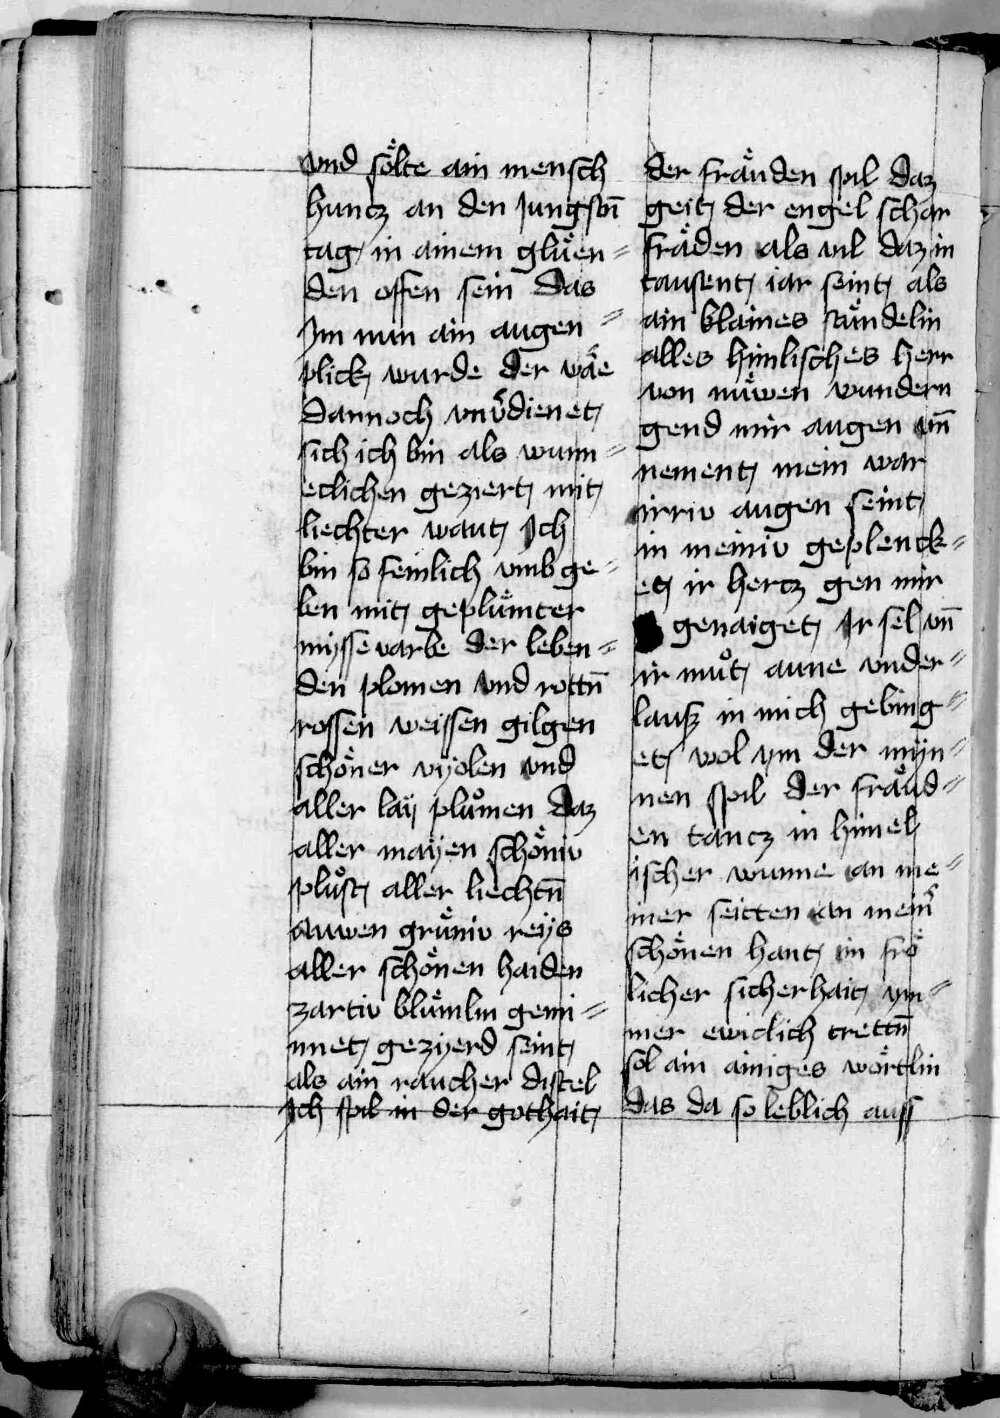 vnd soͤlte ain mensch
huncz an den Jungstn̄
tag in ainem gluͤen=
den offen sein Das
Jm nun ain augen=
plick wurde der waͤe
Dannoch vnv̄dienet
sich ich bin als wunn=
eclichen geziert mit
liechter waut Jch
bin so feinlich vmb ge=
ben mit gepluͤmter
mysseuarbe der leben=
den plomen vnd rottn̄
rossen weissen gilgen
schoͤner vyolen vnd
aller laÿ pluͦmen daz
aller mayen schoͤniv
pluͦst aller liechtn̄
auwen gruͤniv reÿs
aller schoͤnen haiden
zartiv bluͤmlin gemi=
nnet gezyerd seint
als ain raucher distel
Jch spil in der gothait
der fraͤuden spil daz
geit der engel schar
fraͤden als vil daz in
tausent iar seint als
ain klaines staͤndelin
alles himlisches herr
von nuͤwen wundern
gend mir augen vn̄
nement mein war
irriv augen seint
in meiniv geplenck=
et ir hercz gen mir
genaiget Jr sel vn̄
ir muͦt aune vnder=
lausz in mich geding=
et wol ym der myn=
nen spil der fraͤud=
en tancz in himel
ischer wunne an me=
iner seitten an mein̄
schoͤnen hant in froͤ
licher sicherhait ym=
mer ewiclich trettn̄
sol ain ainiges woͤrtlin
das da so leblich auss